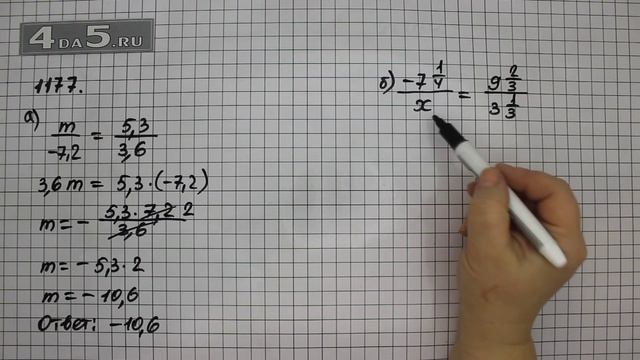 4DA5.RU
1177.
а) m/-7,2 = 5,3/3,6
3,6 m = 5,3·(-7,2)
m = - 5,3·7,2 2/3,6
m = - 5,3·2
m = - 10,6
Ответ: -10,6
б) -7 1/4 / x = 9 2/3 / 3 1/3